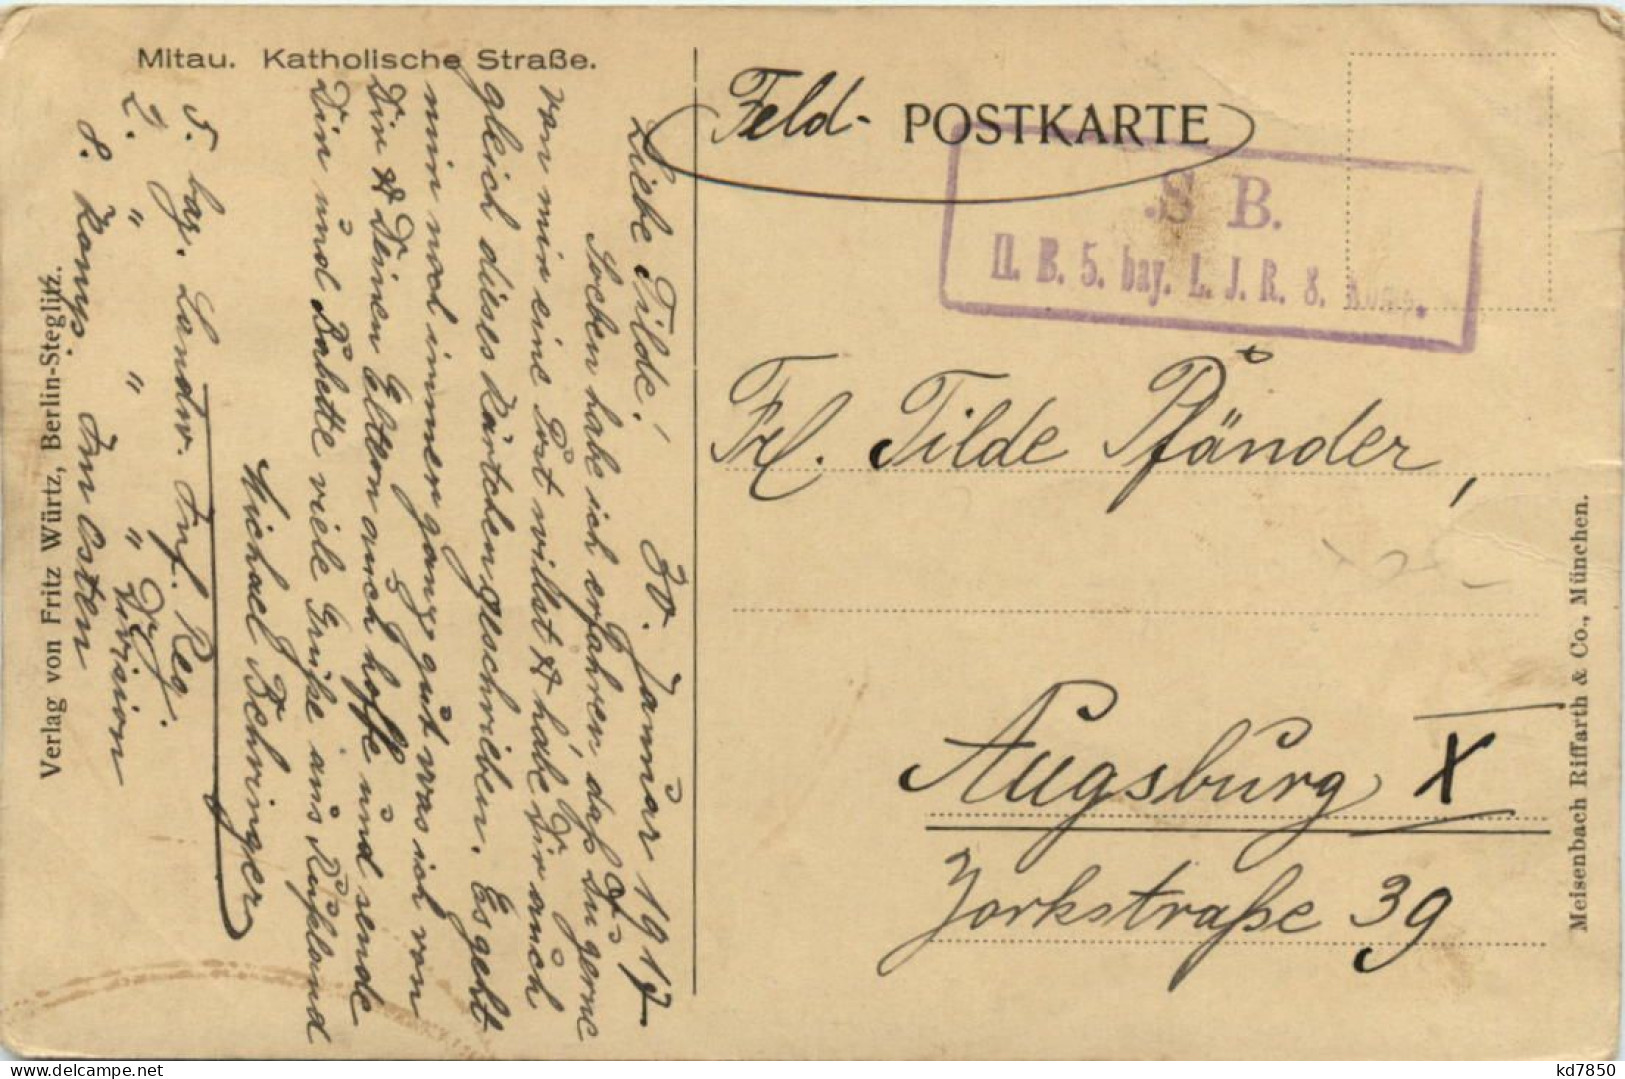 Mitau. Katholische Straße.
Feld- POSTKARTE
S B.
II. B. 5. bay. L. J. R. 8. Komp.
Frl. Tilde Pfänder,
Augsburg X
Yorkstraße 39
30. Januar 1917
Liebe Tilde!
Soeben habe ich erfahren, daß Du gerne
von mir eine Post willst & habe Dir auch
gleich dieses Kärtchen geschrieben. Es geht
mir noch immer ganz gut was ich von
Dir & Deinen Eltern auch hoffe und sende
Dir und Babette viele Grüße aus Rußland
Michael Behringer
5. bay. Landw. Inf. Reg.
2. " " " Division
8. Komp. Im Osten
Verlag von Fritz Würtz, Berlin-Steglitz.
Meisenbach Riffarth & Co., München.
kd7850